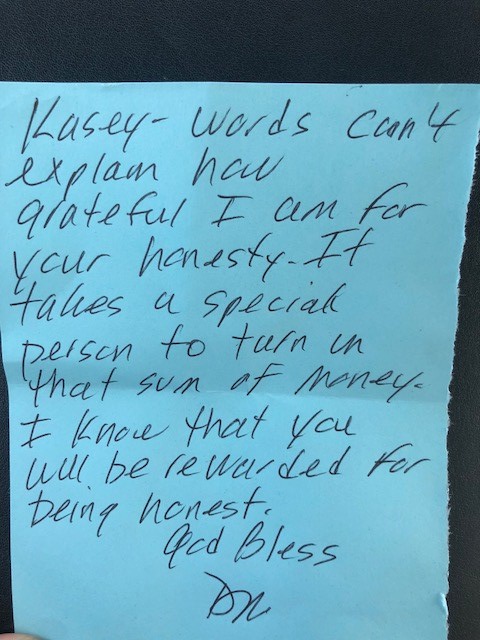 Kasey- words can't
explain how
grateful I am for
your honesty. It
takes a special
person to turn in
that sum of money.
I know that you
will be rewarded for
being honest.
God Bless